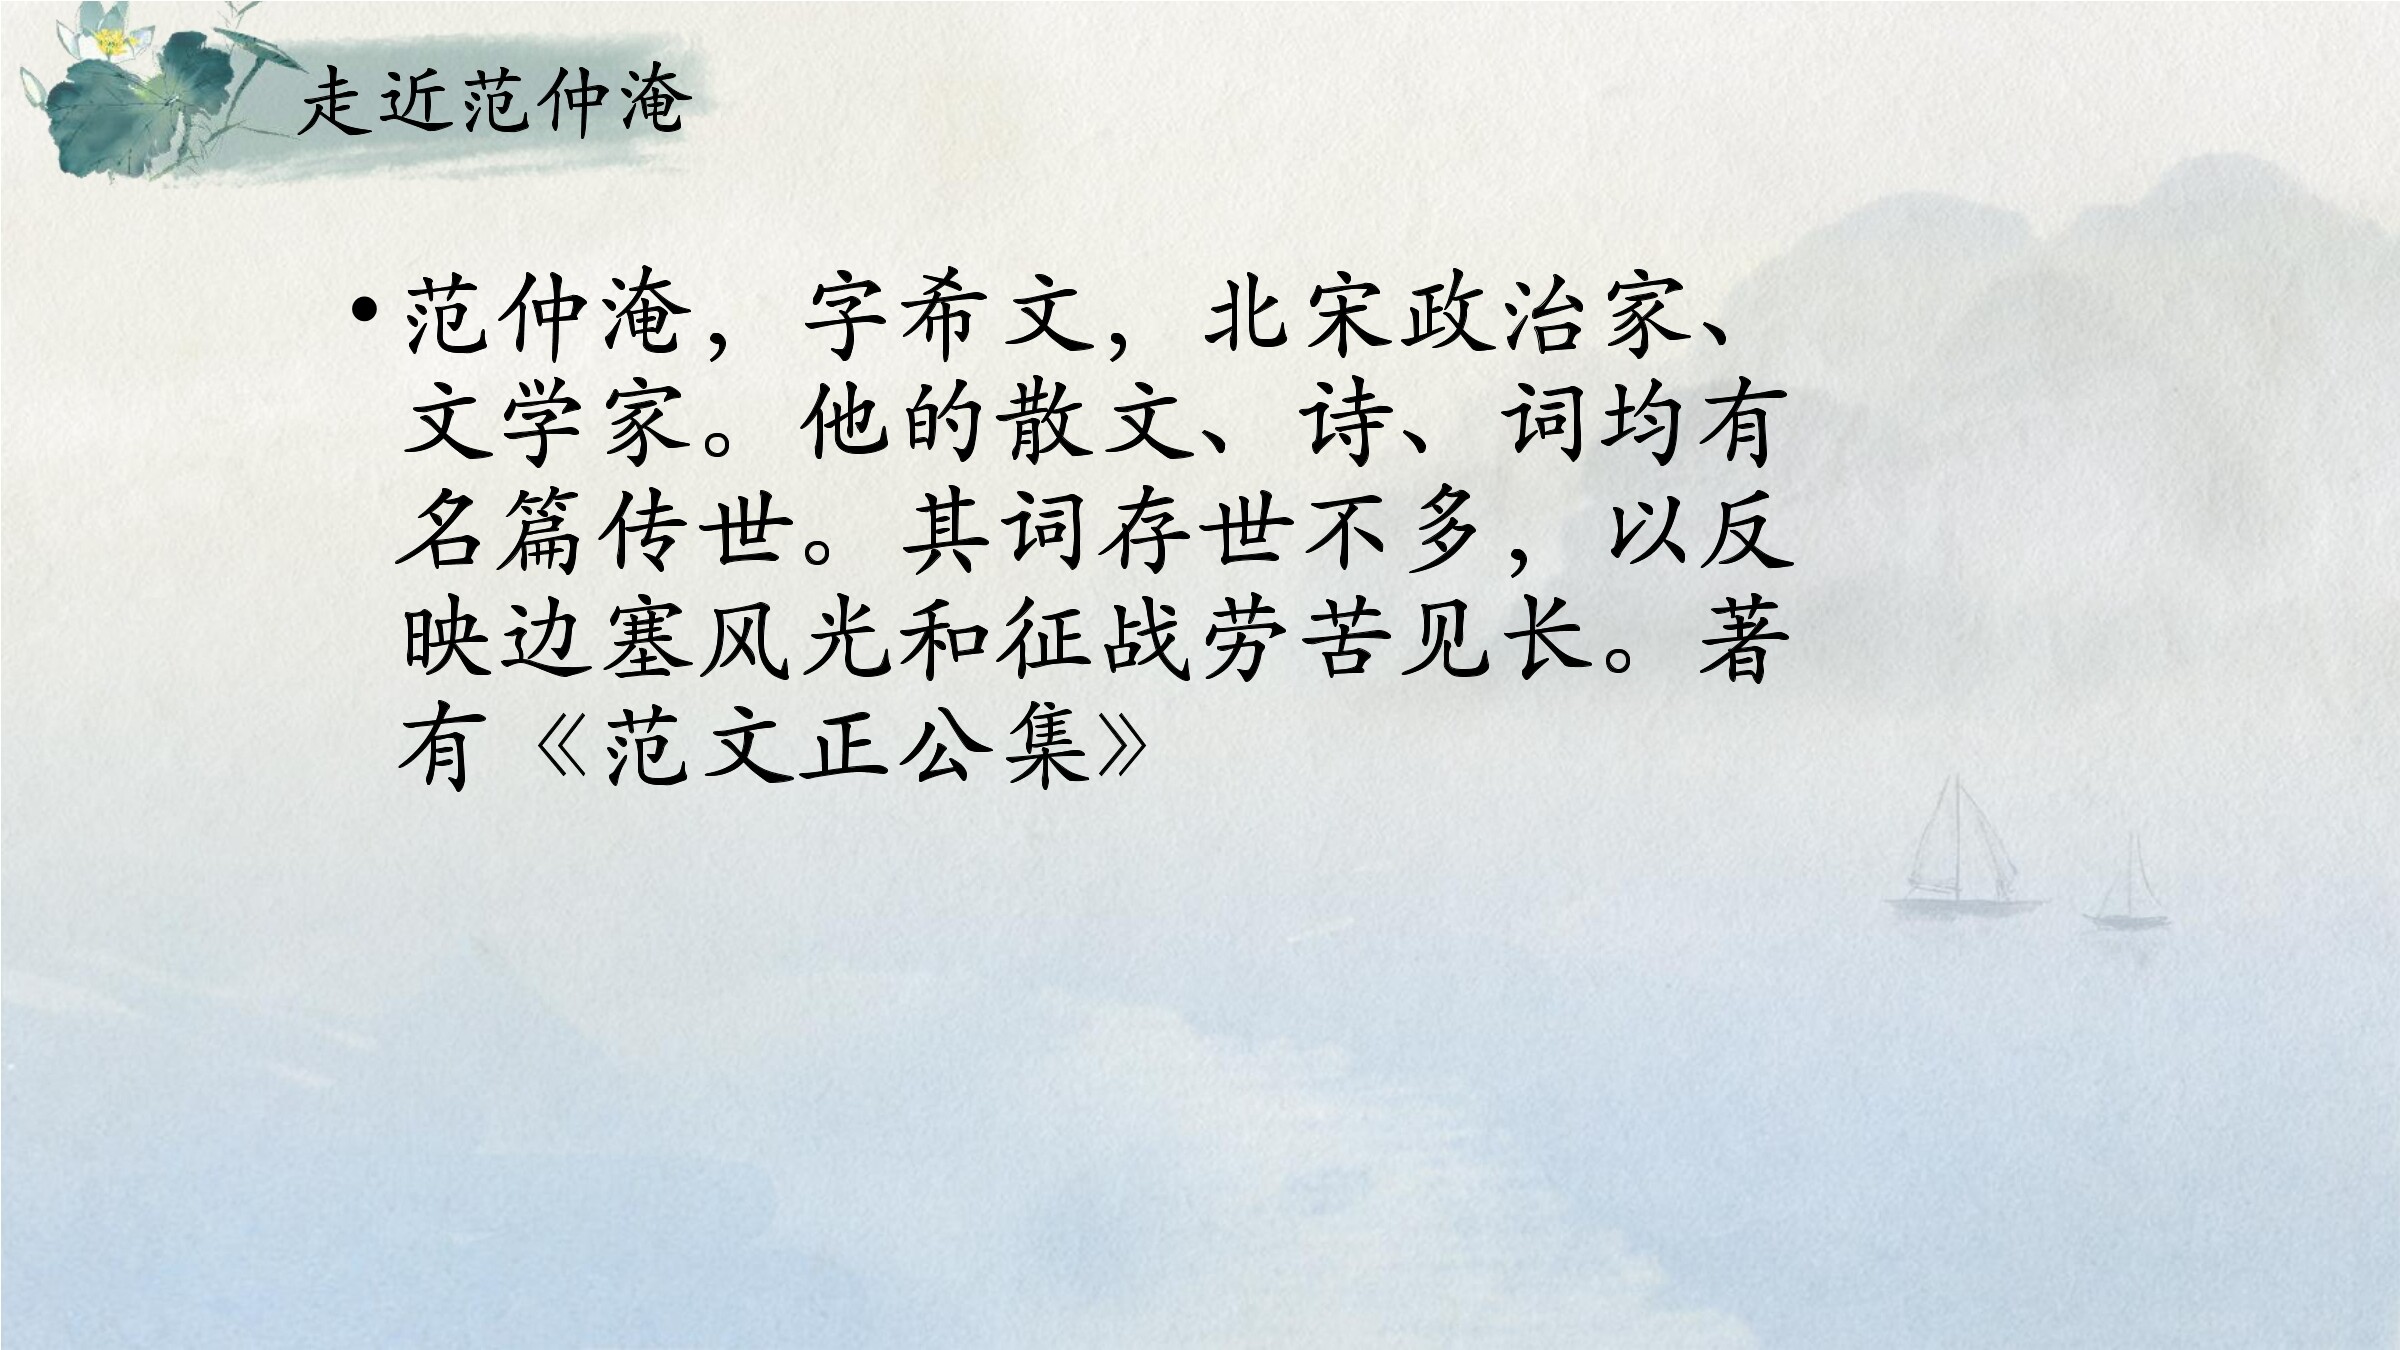 走近范仲淹
•范仲淹，字希文，北宋政治家、
文学家。他的散文、诗、词均有
名篇传世。其词存世不多，以反
映边塞风光和征战劳苦见长。著
有《范文正公集》